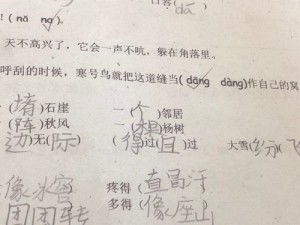 口答(dā)
!(nǎ na)
天不高兴了，它会一声不吭，躲在角落里。
呼刮的时候，寒号鸟就把这道缝当(dāng dàng)作自己的窝
(堵)石崖 一(个)邻居
(阵)秋风 一(棵)杨树
边无(际) (得)过(且)过 大雪(纷)(飞
像冰窖 疼得(直冒汗
团团转 多得(像座山